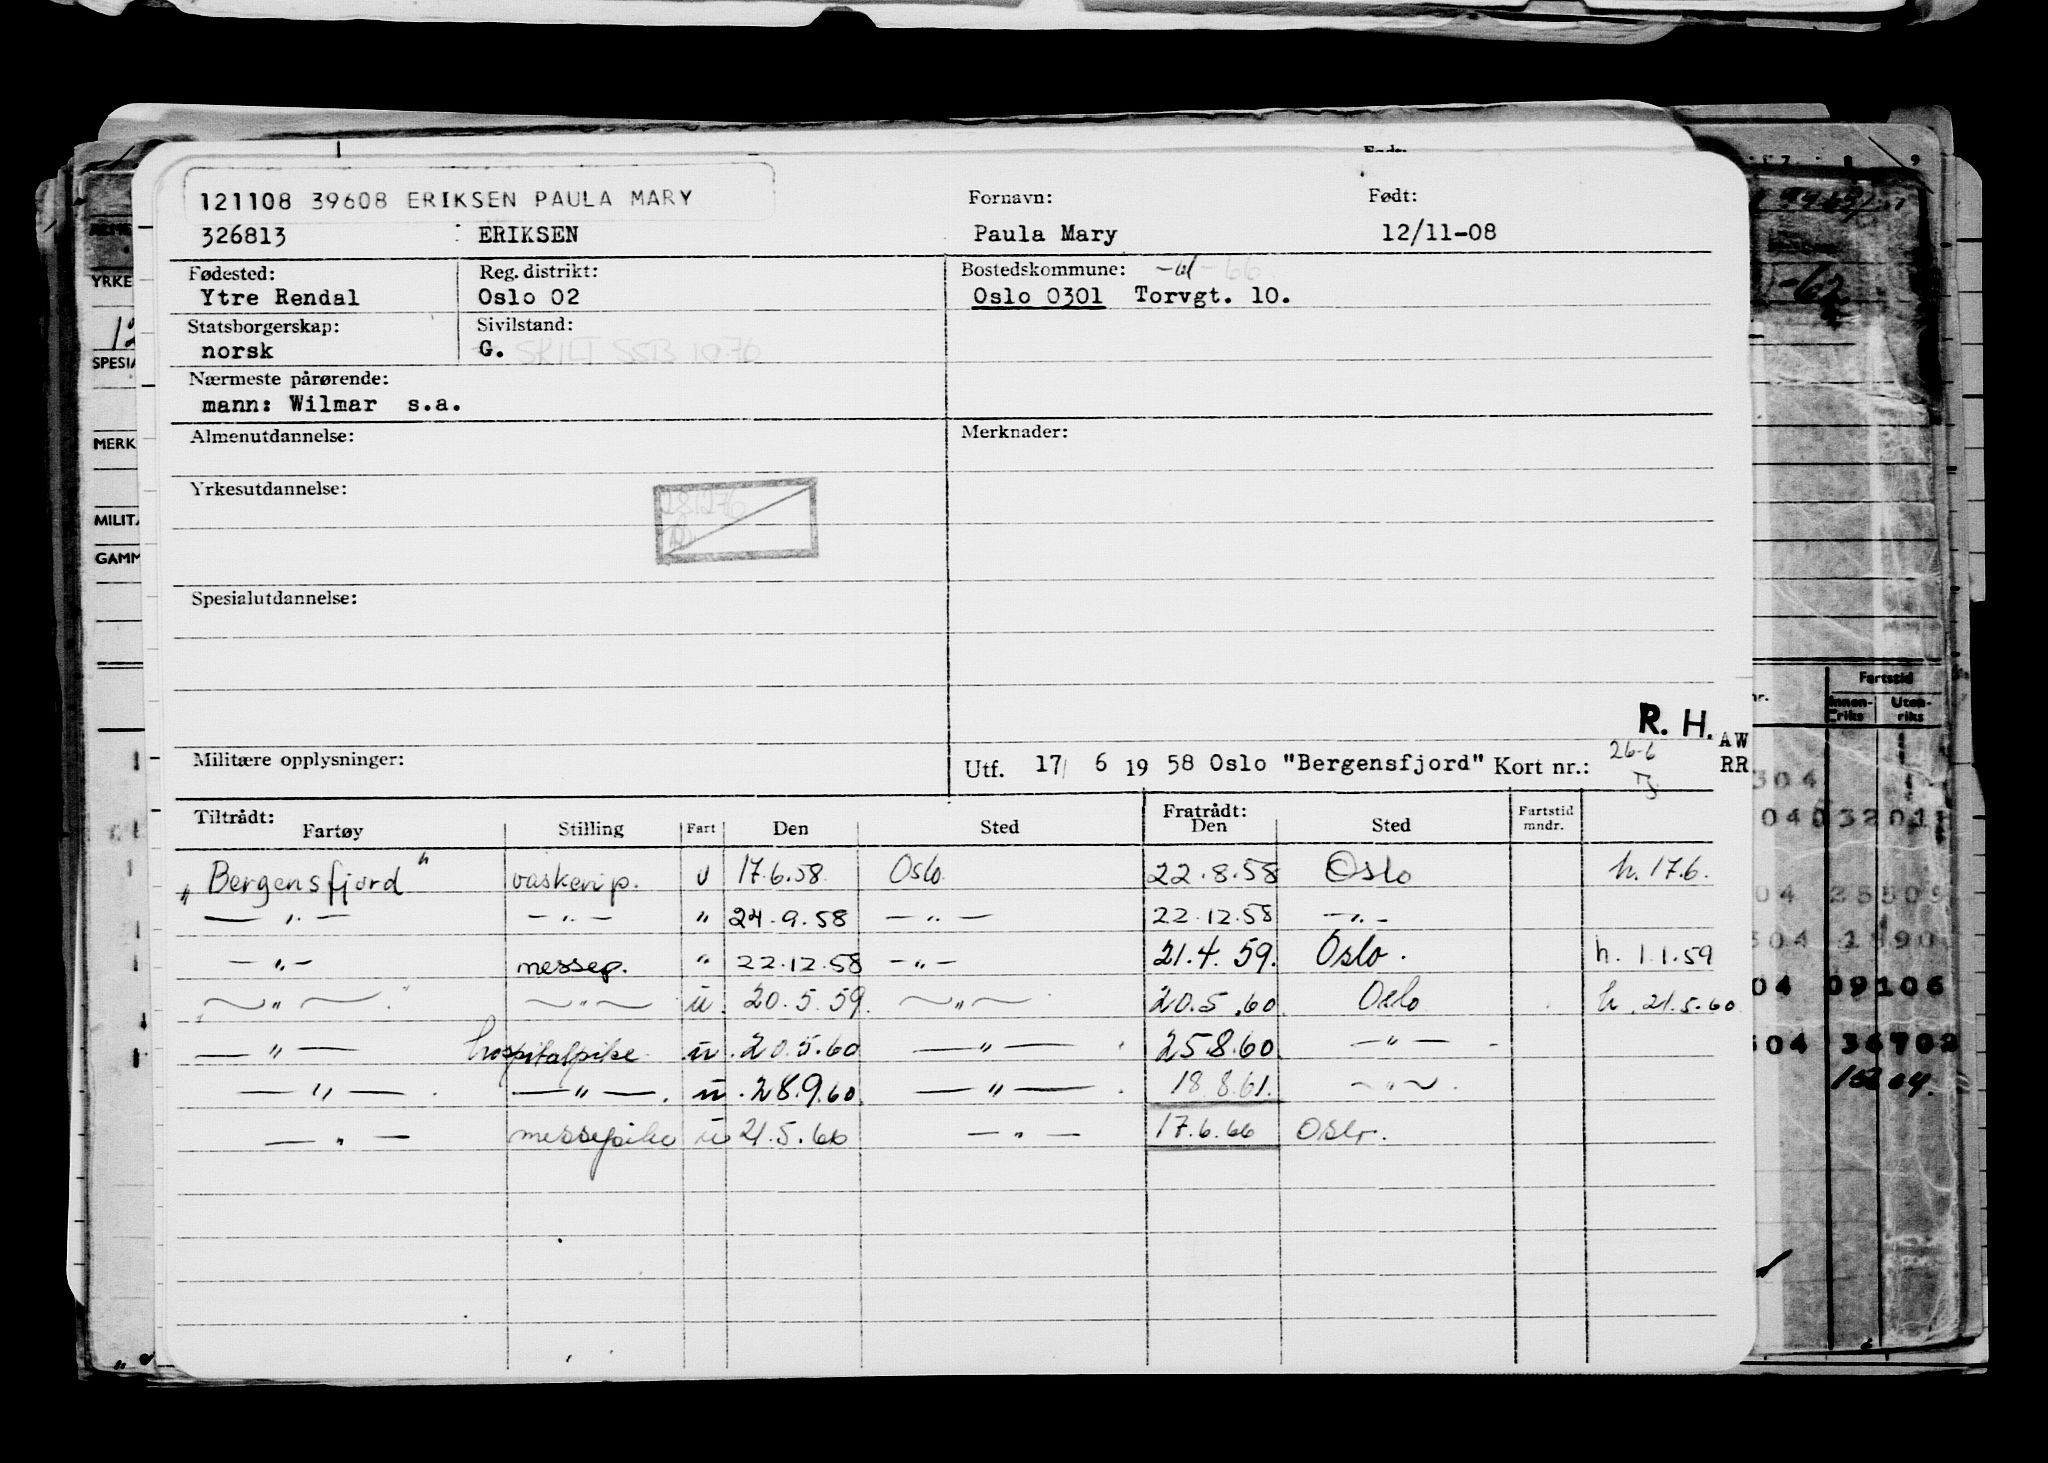 121108 39608 ERIKSEN PAULA MARY
Fornavn: Født:
326813 ERIKSEN Paula Mary 12/11-08
Fødested: Reg. distrikt: Bostedskommune: -66
Ytre Rendal Oslo 02 Oslo 0301 Torvgt. 10.
Statsborgerskap: Sivilstand:
norsk G. SKILT SSB 10.76
Nærmeste pårørende:
mann: Wilmar s.a.
Almenutdannelse: Merknader:
Yrkesutdannelse:
281276
Spesialutdannelse:
R. H.
AW
RR
26-6
Militære opplysninger: Utf. 17/ 6 19 58 Oslo "Bergensfjord" Kort nr.:
Tiltrådt: Fratrådt:
Fartøy Stilling Fart Den Sted Den Sted Fartstid mndr.
„Bergensfjord" vaskerip. u 17.6.58 Oslo 22.8.58 Oslo h. 17.6.
— „ — — „ — " 24.9.58 — „ — 22.12.58 — „ —
— „ — messep. " 22.12.58 — „ — 21.4.59. Oslo. h. 1.1.59
— „ — — „ — u. 20.5.59. — „ — 20.5.60 Oslo h. 21.5.60
— " — hospitalpike u. 20.5.60 — " — 25.8.60 — " —
— " — — " — u. 28.9.60. — " — 18.8.61. — " —
— " — messepike u 21.5.66 — " — 17.6.66 Oslo.
YRKE
SPESIA
MERK
MILITÆ
GAMM
-62
Fartstid
Innen-riks Uten-riks
304
09106
304 36702